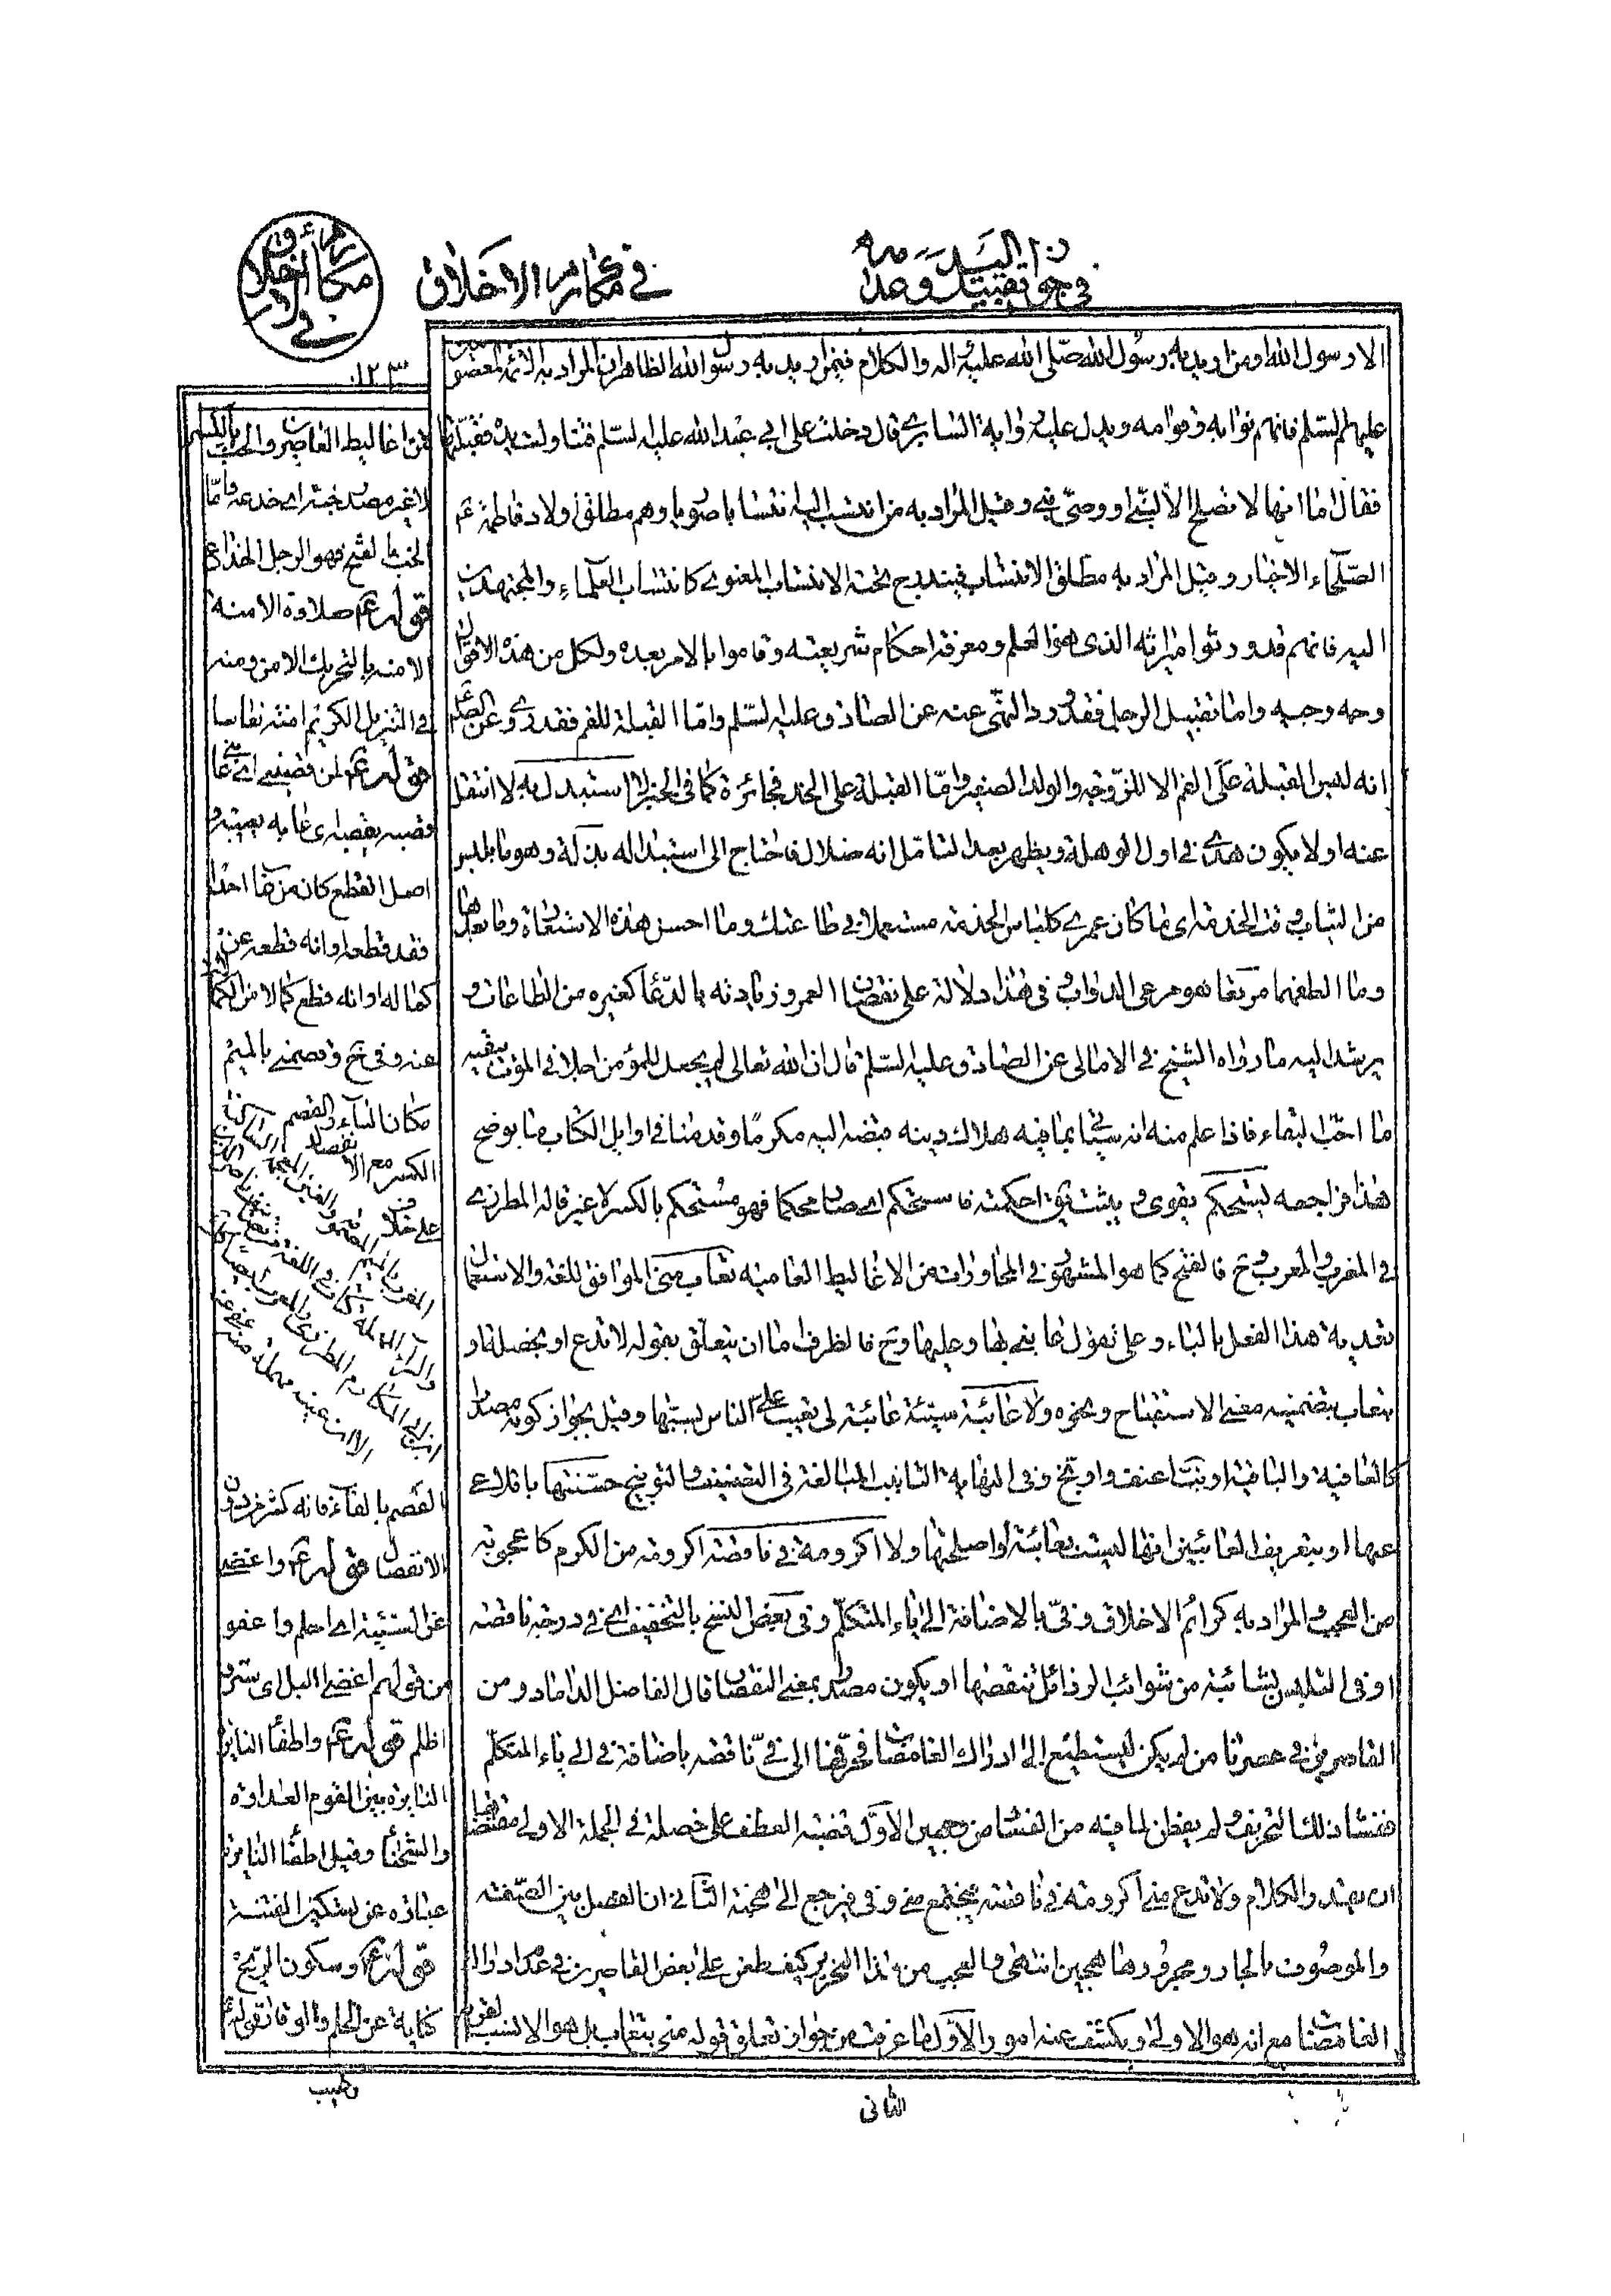 في جواز تقبيل اليد وعدمه
في مكارم الاخلاق
مكارم الاخلاق
١٢٣
الا رسول الله او من اريد به رسول الله صلى الله عليه واله والكلام فيمن اريد به رسول الله الظاهر ان المراد به الائمة المعصومين
عليهم السلم فانهم نوابه وقوامه ويدل عليه رواية السابري قال دخلت على ابي عبد الله عليه السلم فتناولت يده فقبلتها
فقال اما انها لا تصلح الا لنبي او وصي نبي وقيل المراد به من انتسب اليه انتسابا صوريا وهم مطلق اولاد فاطمة ع
الصلحاء الاخيار وقيل المراد به مطلق الانتساب فيندرج تحته الانتساب المعنوي كانتساب العلماء والمجتهدين
اليه فانهم قد ورثوا ميراثه الذي هو العلم ومعرفة احكام شريعته وقاموا بالامر بعده ولكل من هذه الاقوال
وجه وجيه واما تقبيل الرجل فقد ورد النهى عنه عن الصادق عليه السلم واما القبلة للفم فقد روى عن الصادق
انه ليس القبلة على الفم الا للزوجة والولد الصغير واما القبلة على الخد فجائزة كما في الخبر لا استبدل به لا انتقل
عنه او لا يكون هدى في اول الوهلة ويظهر بعد التامل انه ضلال فاحتاج الى استبداله بذلة وهو ما يلبس
من الثياب وقت الخدمة اى ما كان عمرى كلباس الخدمة مستعملا في طاعتك وما احسن هذه الاستعارة وما بعدها
وما الطفهما مرتعا هو مرعى الدواب وفي هذا دلالة على نقصان العمر وزيادته بالدعا كغيره من الطاعات و
يرشد اليه ما رواه الشيخ في الامالى عن الصادق عليه السلم قال ان الله تعالى لم يجعل للمؤمن اجلا في الموت يبقيه
ما احب البقاء فاذا علم منه انه سياتي بما فيه هلاك دينه قبضه اليه مكرما وقد مر منا في اوايل الكتاب ما يوضح
هذا فراجعه يستحكم يقوى و يثبت يق احكمته فاستحكم اى صار محكما فهو مستحكم بالكسر لا غير قاله المطرزى
في المغرب والمعرب وح فالفتح كما هو المشهور في المحاورات من الاغاليط العامية تعاب مني الموافق للغة والاستعمال
تعدية هذا الفعل بالباء وعلى تقول عابني بها وعليها وح فالظرف اما ان يتعلق بقوله لا تدع او بخصلة او
بتعاب بتضمينه معنى الاستقباح ونحوه ولا عائبة سيئة عائبة لى تعيب على الناس بسببها وقيل بجواز كونه مصدرا
كالعافية والباقية اونب اعنف واوبخ وفي النهاية التانيب المبالغة في التعنيف والتوبيخ حسنتها باقلاعى
عنها او بتعريف العائبين انها ليست بعائبة او اصلحتها ولا اكرومة في ناقصة اكرومة من الكرم كاعجوبة
من العجب والمراد به كرائم الاخلاق وفي بالاضافة الى ياء المتكلم وفي بعض النسخ بالتخفيف اى في درجة ناقصة
او في التلبس بشائبة من شوائب الرذائل تنقصها او يكون مصدر بمعنى النقصان قال الفاضل الداماد ومن
القاصرين في عصرنا من لم يكن ليستطيع الى ادراك الغامضات فحرفها الى في ناقصة باضافة في الى ياء المتكلم
فنشا ذلك التحريف ولم يفطن لما فيه من الفساد من وجهين الاول قضية العطف على خصلة في الجملة الاولى مقتضاها
ان يقدر الكلام ولا تدع مني اكرومة في ناقصة فيجتمع مني وفي فيرجع الى هجنة الثاني ان الفصل بين الصفة
والموصوف بالجار ومجروره هجين انتهى والعجب من هذا النحرير كيف طعن على بعض القاصرين في عدم ادراك
الغامضات مع انه هو الاولى ويكشف عنه امور الاول ما عرفت من جواز تعلق قوله مني بتعاب بل هو الانسب لقربه
فمن اغاليط القاصرين والخب بالكسر
لا غير مصدر خبه اى خدعه واما
الخب بالفتح فهو الرجل الخداع
قوله ع صلاوة الامنة
الامنة بالتحريك الامن ومنه
في التنزيل الكريم امنة نعاسا
قوله ع من قصبني اى عابني
قصبه يقصبه اى عابه يعيبه و
اصل القطع كان من عاب احدا
فقد قطعه او انه قطعه عن
كماله او انه قطع كمالا من الكمالات
عنه وفي خ وقصمني بالميم
مكان الباء والقصم
الكسر مع الانفصال
على خلاف
الفصم بالفاء فانه كسر من دون
الانفصال قوله ع واغضى
عن السيئة اى احلم واعفو
من قولهم اغضى الليل اى ستر
اظلم قوله ع واطفأ النايرة
النايرة بين القوم العداوة
والشحناء وقيل اطفأ النايرة
عبارة عن تسكين الفتنة
قوله ع وسكون الريح
كناية عن الحلم والوقار قوله ع
الثاني
وطيب